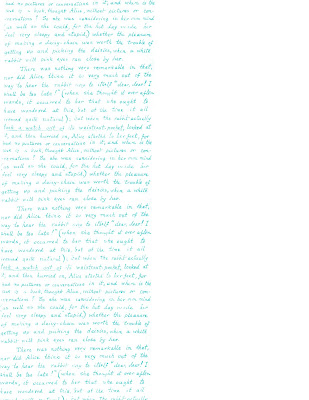 had no pictures or conversations in it, and where is the
use is a book, thought Alice, without pictures or con-
versations? So she was considering in her own mind
as well as she could, for the hot day made her
feel very sleepy and stupid) whether the pleasure
of making a daisy-chain was worth the trouble of
getting up and picking the daisies, when a white
rabbit with pink eyes ran close by her.
There was nothing very remarkable in that,
nor did Alice think it so very much out of the
way to hear the rabbit say to itself "dear, dear! I
shall be too late!" (when she thought it over after
wards, it occurred to her that she ought to
have wondered at this, but at the time it all
seemed quite natural); but when the rabbit actually
took a watch out of its waistcoat-pocket, looked at
it, and then hurried on, Alice started to her feet, for
had no pictures or conversations in it, and where is the
use is a book, thought Alice, without pictures or con-
versations? So she was considering in her own mind
as well as she could, for the hot day made her
feel very sleepy and stupid) whether the pleasure
of making a daisy-chain was worth the trouble of
getting up and picking the daisies, when a white
rabbit with pink eyes ran close by her.
There was nothing very remarkable in that,
nor did Alice think it so very much out of the
way to hear the rabbit say to itself "dear, dear! I
shall be too late!" (when she thought it over after
wards, it occurred to her that she ought to
have wondered at this, but at the time it all
seemed quite natural); but when the rabbit actually
took a watch out of its waistcoat-pocket, looked at
it, and then hurried on, Alice started to her feet, for
had no pictures or conversations in it, and where is the
use is a book, thought Alice, without pictures or con-
versations? So she was considering in her own mind
as well as she could, for the hot day made her
feel very sleepy and stupid) whether the pleasure
of making a daisy-chain was worth the trouble of
getting up and picking the daisies, when a white
rabbit with pink eyes ran close by her.
There was nothing very remarkable in that,
nor did Alice think it so very much out of the
way to hear the rabbit say to itself "dear, dear! I
shall be too late!" (when she thought it over after
wards, it occurred to her that she ought to
have wondered at this, but at the time it all
seemed quite natural); but when the rabbit actually